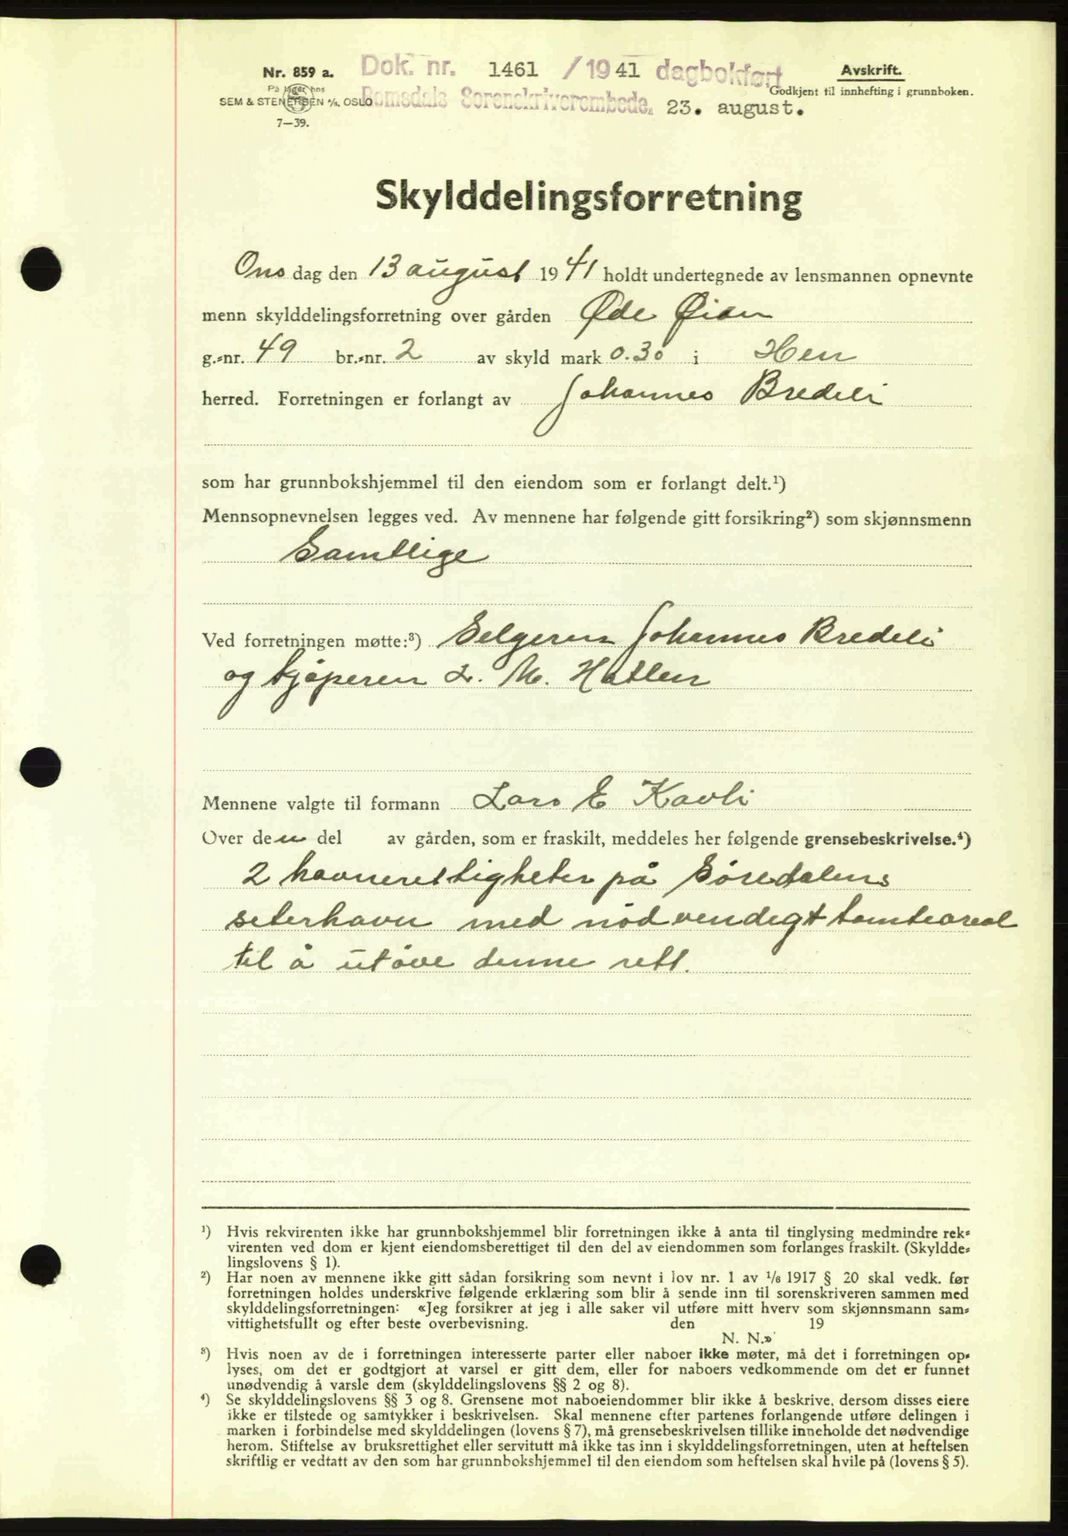 Nr. 859 a.
På lager hos
SEM & STENERSEN A/S. OSLO
7—39.
Dok. nr. 1461 / 1941 dagbokført
Romsdals Sorenskriverembede, 23. august.
Avskrift.
Godkjent til innhefting i grunnboken.
Skylddelingsforretning
Ons dag den 13 august 1941 holdt undertegnede av lensmannen opnevnte
menn skylddelingsforretning over gården Øde Øian
g.-nr. 49 br.-nr. 2 av skyld mark 0.30 i Hen
herred. Forretningen er forlangt av Johannes Bredeli
som har grunnbokshjemmel til den eiendom som er forlangt delt.¹)
Mennsopnevnelsen legges ved. Av mennene har følgende gitt forsikring²) som skjønnsmenn
Samtlige
Ved forretningen møtte:³) Selgeren Johannes Bredeli
og kjøperen L. M. Hatlen
Mennene valgte til formann Lars E Kavli
Over den del av gården, som er fraskilt, meddeles her følgende grensebeskrivelse.⁴)
2 havnerettigheter på Søredalens
seterhavn med nødvendigt tomteareal
til å utöve denne rett.
¹) Hvis rekvirenten ikke har grunnbokshjemmel blir forretningen ikke å anta til tinglysing medmindre rek-
virenten ved dom er kjent eiendomsberettiget til den del av eiendommen som forlanges fraskilt. (Skyldde-
lingslovens § 1).
²) Har noen av mennene ikke gitt sådan forsikring som nevnt i lov nr. 1 av 1/6 1917 § 20 skal vedk. før
forretningen holdes underskrive følgende erklæring som blir å sende inn til sorenskriveren sammen med
skylddelingsforretningen: «Jeg forsikrer at jeg i alle saker vil utføre mitt hverv som skjønnsmann sam-
vittighetsfullt og efter beste overbevisning. den 19
N. N.»
³) Hvis noen av de i forretningen interesserte parter eller naboer ikke møter, må det i forretningen op-
lyses, om det er godtgjort at varsel er gitt dem, eller for naboers vedkommende om det er funnet
unødvendig å varsle dem (skylddelingslovens §§ 2 og 8).
⁴) Se skylddelingslovens §§ 3 og 8. Grensene mot naboeiendommer blir ikke å beskrive, dersom disses eiere
ikke er tilstede og samtykker i beskrivelsen. Skal mennene efter partenes forlangende utføre delingen i
marken i forbindelse med skylddelingen (lovens § 7), må grensebeskrivelsen tillike inneholde det nødvendige
herom. Stiftelse av bruksrettighet eller servitutt må ikke tas inn i skylddelingsforretningen, uten at heftelsen
skriftlig er vedtatt av den som har grunnbokshjemmel til den eiendom som heftelsen skal hvile på (lovens § 5).